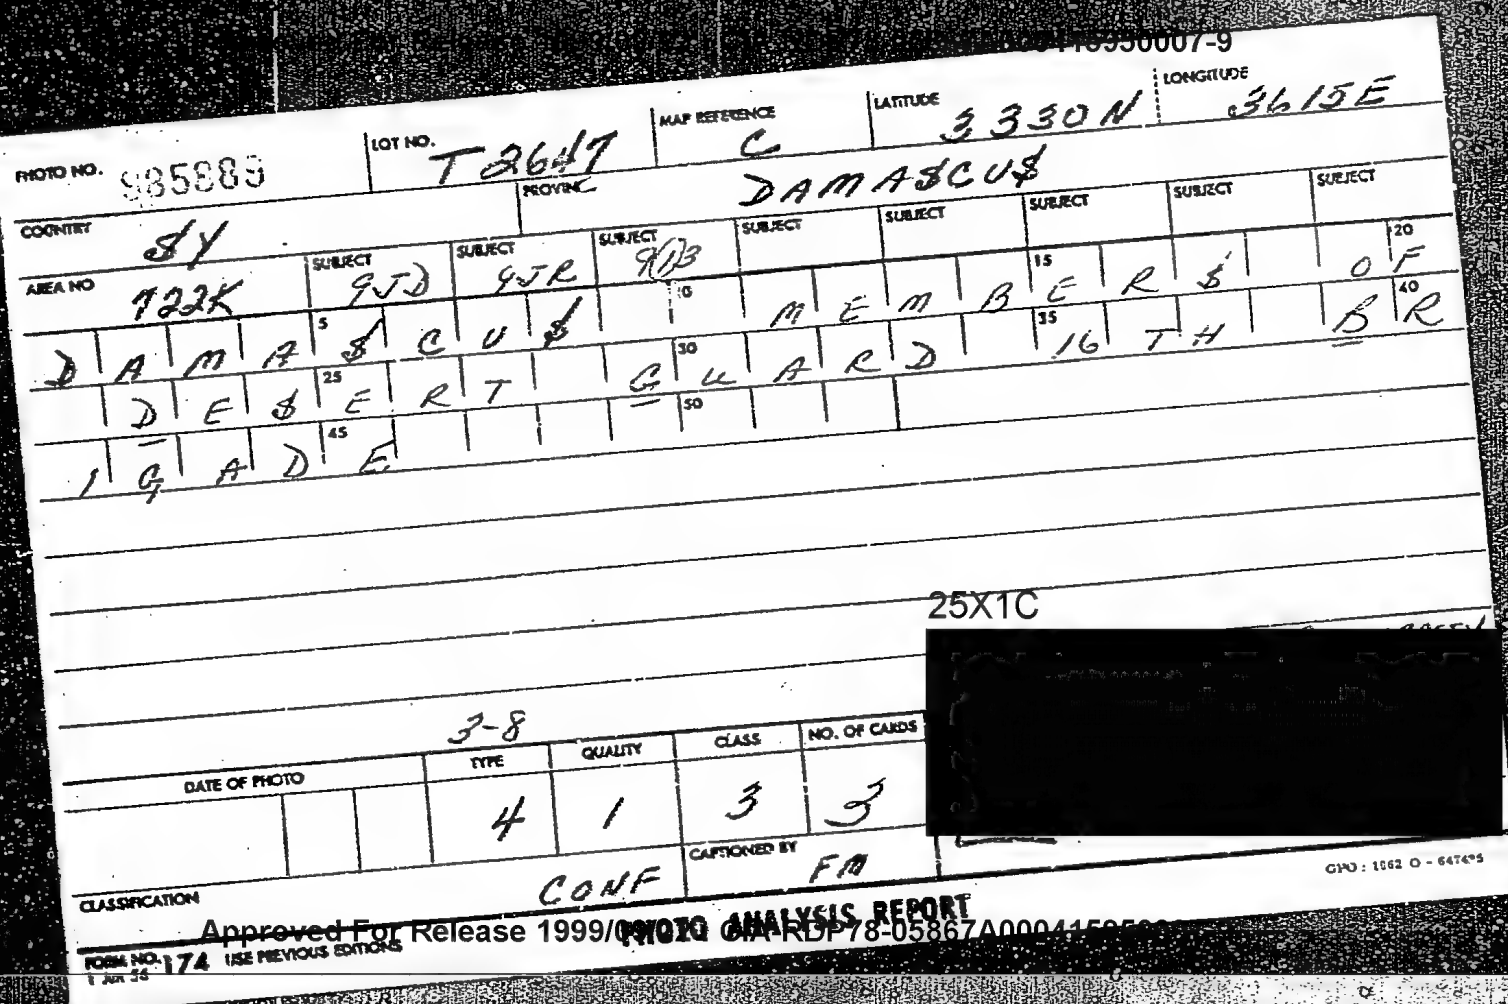 0007-9
PHOTO NO. 985889 LOT NO. T2647 MAP REFERENCE C LATITUDE 3330N LONGITUDE 3615E
COUNTRY SY PROVINC DAMASCUS
AREA NO 722K SUBJECT 9JD SUBJECT 9JR SUBJECT 9(1)3 SUBJECT SUBJECT SUBJECT SUBJECT SUBJECT
DAMASCUS MEMBERS OF
5 10 15 20
DESERT GUARD 16TH BR
25 30 35 40
IGADE
45 50
25X1C
3-8
DATE OF PHOTO TYPE QUALITY CLASS NO. OF CARDS
4 1 3 3
CLASSIFICATION CONF CAPTIONED BY FM
GPO : 1962 O - 647495
PHOTO ANALYSIS REPORT
Approved For Release 1999/ CIA-RDP78-05867A00041595
FORM NO. 174 USE PREVIOUS EDITIONS
1 JUN 56